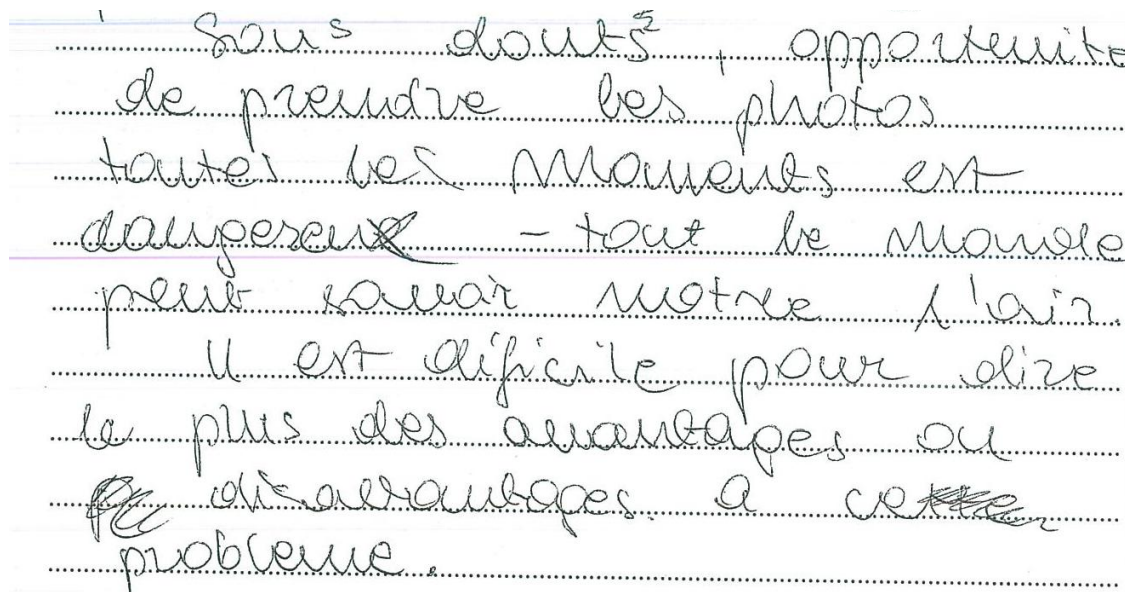 Sous douts, opportunite
de prendre les photos
toutes les moments est
dangereux - tout le monde
peut savoir notre l'air.
Il est dificile pour dire
le plus des avantages ou
disavantages a ce
probleme.